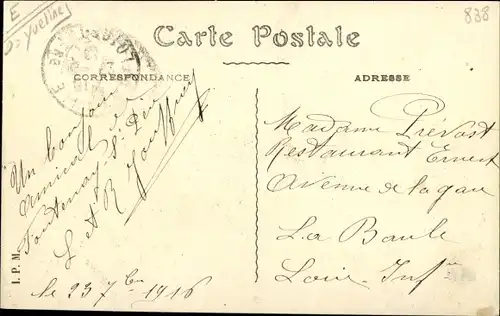 E
Yveline
838
Carte Postale
CORRESPONDANCE
ADRESSE
Un bonjour
amical de
Fontenay St Père
L et R
le 23 7bre 1916
Madame Prévost
Restaurant Ernest
Avenue de la gare
La Baule
Loire Infre
I. P. M.